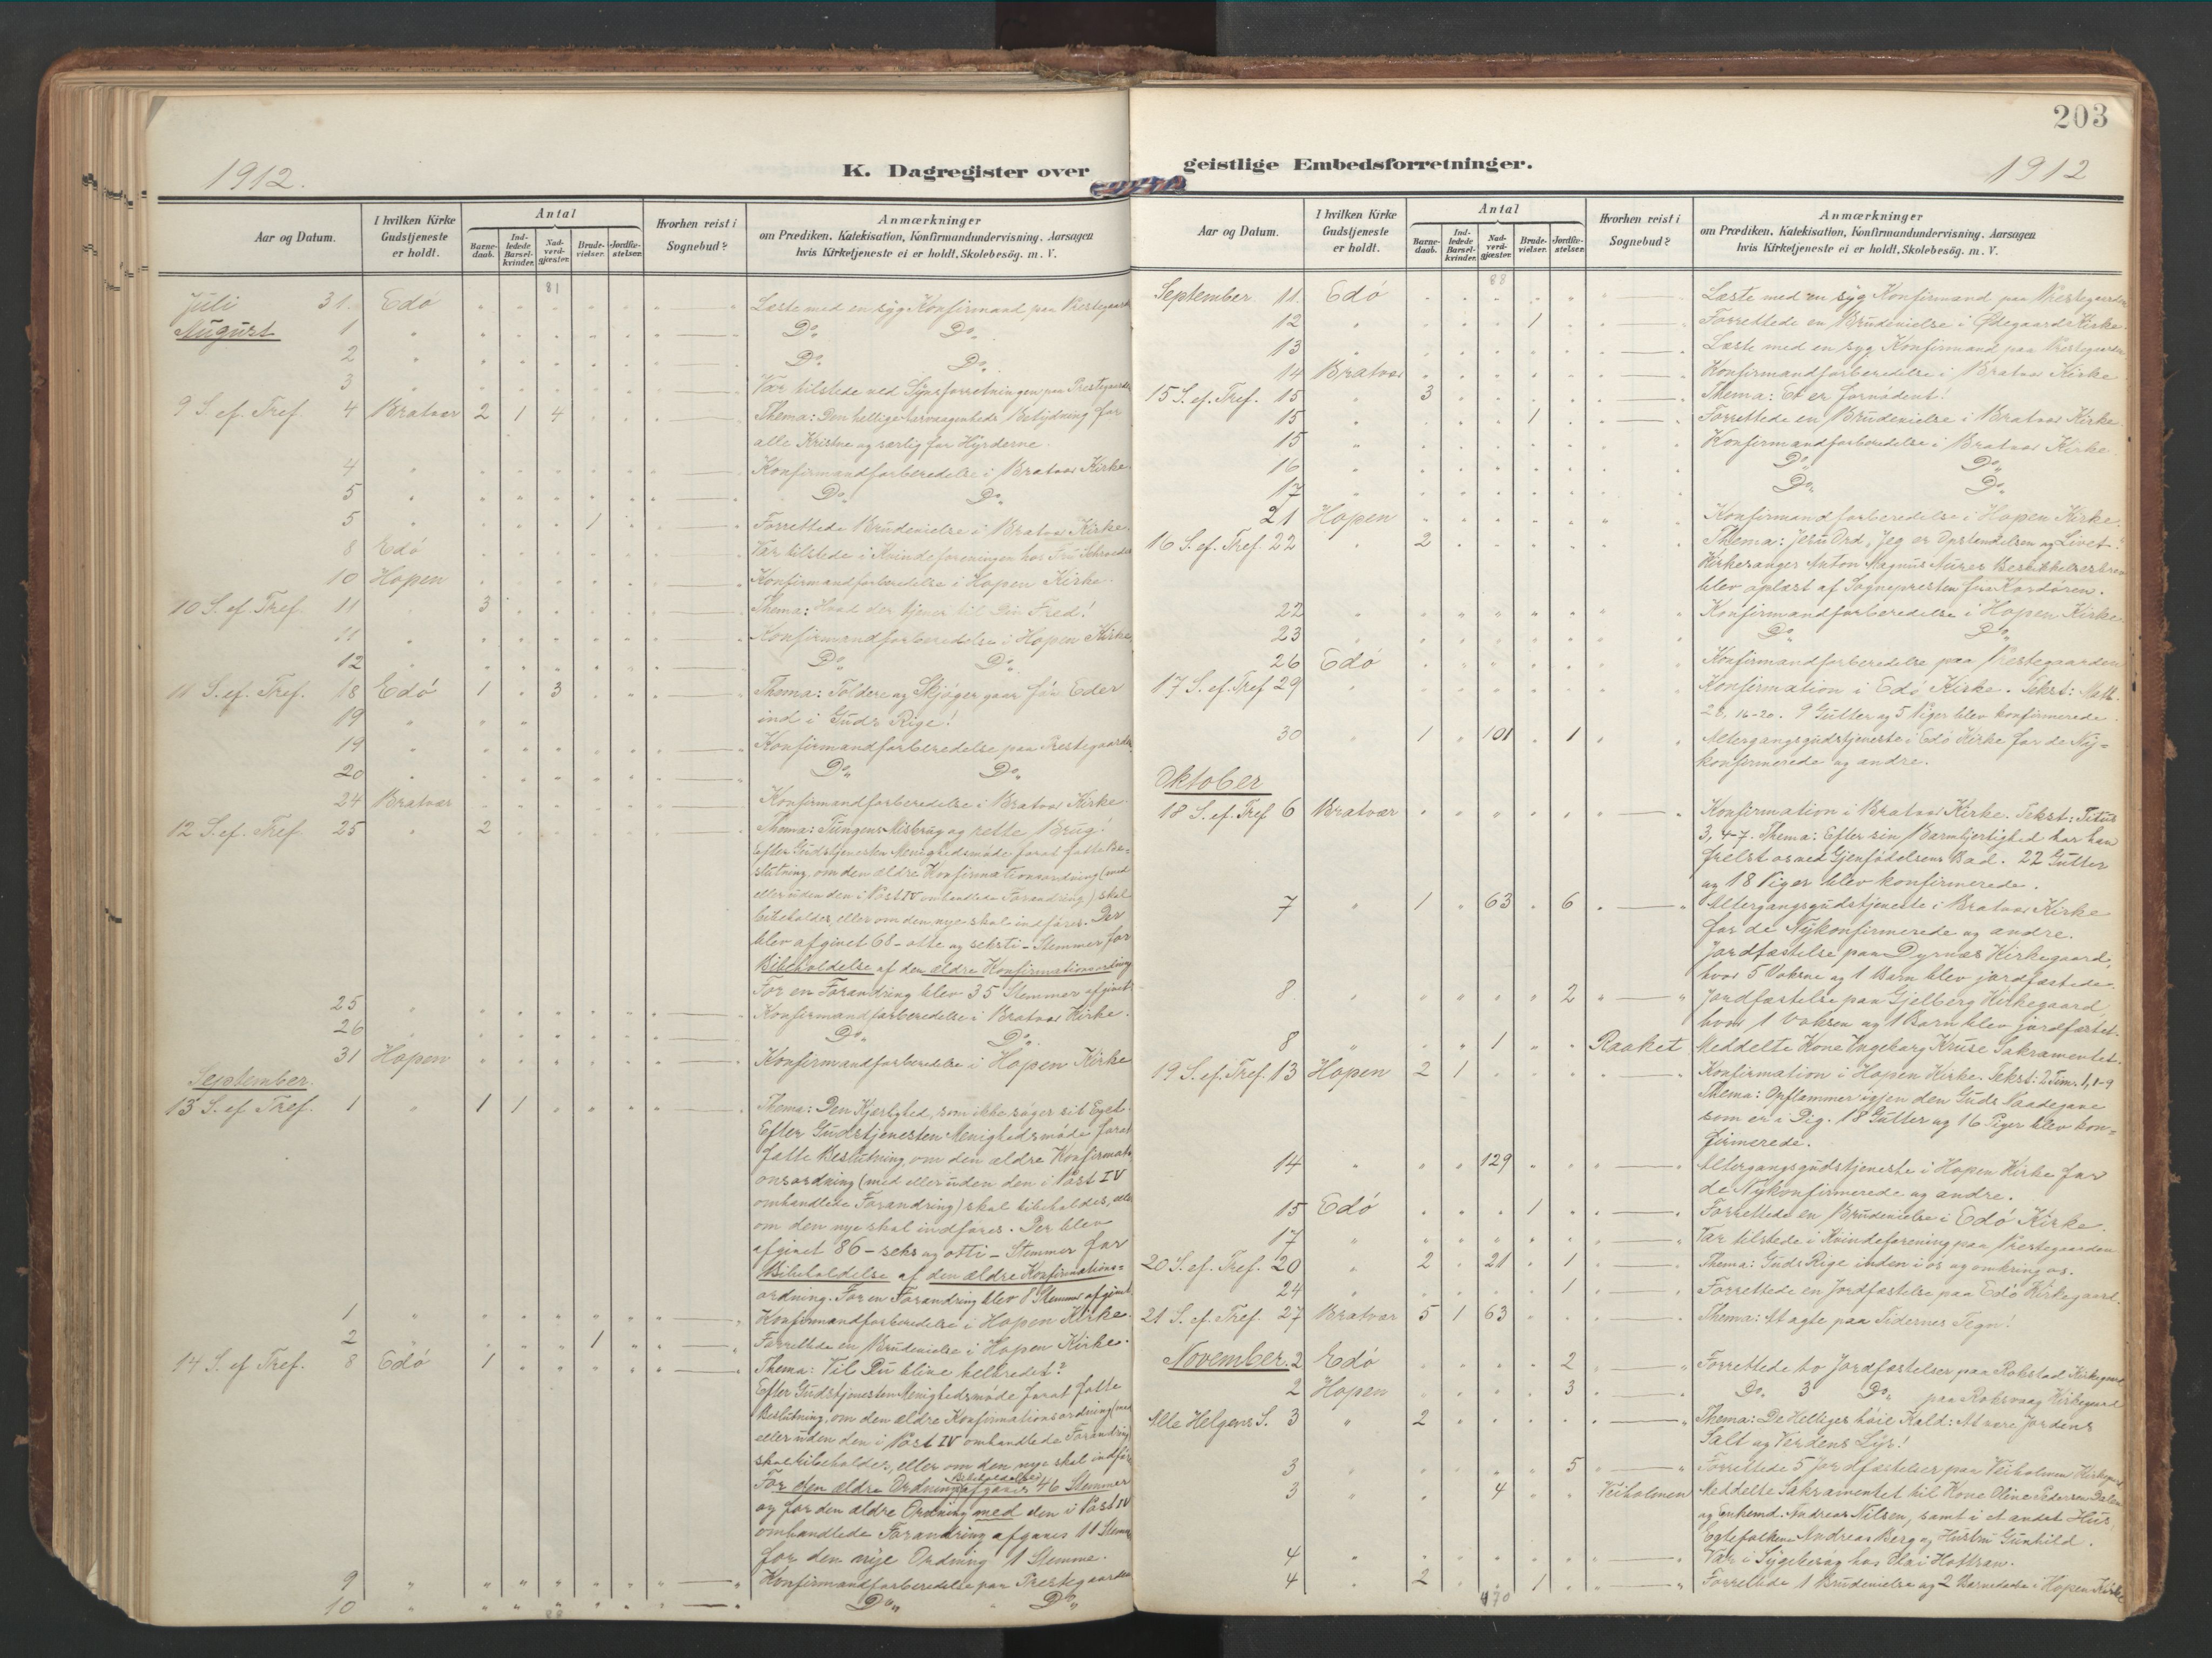 1912.
K. Dagregister over
Aar og Datum.
I hvilken Kirke Gudstjeneste er holdt.
Antal
Barne-daab.
Ind-ledede Barsel-kvinder.
Nad-verd-gjæster.
Brude-vielser.
Jordfæ-stelser.
Hvorhen reist i Sognebud?
Anmærkninger
om Prædiken, Katekisation, Konfirmandundervisning. Aarsagen
hvis Kirketjeneste ei er holdt, Skolebesög. m. V.
81
Juli 31. Edö Læste med en syg Konfirmand paa Prestegaarden
August 1 " Do. Do.
2 " Do. Do.
3 " Var tilstede ved Synsforretningen paa Prestegaarden
9 S. ef. Tref. 4 Bratvær 2 1 4 Thema: Den hellige Aarvaagenheds Betydning for
alle Kristne og særlig for Hyrderne.
4 " Konfirmandforberedelse i Bratvær Kirke.
5 " Do. Do.
5 " 1 Forrettede Brudevielse i Bratvær Kirke.
8 Edö Var tilstede i Kvindeforeningen hos Fru
10 Hopen Konfirmandforberedelse i Hopen Kirke.
10 S. ef. Tref. 11 " 3 Thema: Hvad der tjener til Din Fred!
11 " Konfirmandforberedelse i Hopen Kirke
12 " Do. Do.
11 S. ef. Tref. 18 Edö 1 3 Thema: Toldere og Skjöger gaar för Eder
ind i Guds Rige!
19 "
19 " Konfirmandforberedelse paa Prestegaarden.
20 " Do. Do.
24 Bratvær Konfirmandforberedelse i Bratvær Kirke.
12 S. ef. Tref. 25 " 2 Thema: Tungens Misbrug og rette Brug!
Efter Gudstjenesten Menighedsmöde forat fatte Be=
slutning, om den ældre Konfirmationsordning (med
eller uden den i Post IV omhandlede Forandring) skal
bibeholdes, eller om den nye skal indföres. Der
blev afgivet 68 - otte og seksti - Stemmer for
Bibeholdelse af den ældre Konfirmationsordning
For en Forandring blev 35 Stemmer afgivet
25 " Konfirmandforberedelse i Bratvær Kirke.
26 " Do. Do.
31 Hopen Konfirmandforberedelse i Hopen Kirke
September.
13 S. ef. Tref. 1 " 1 1 Thema: Den Kjærlighed, som ikke söger sit Eget.
Efter Gudstjenesten Menighedsmöde forat
fatte Beslutning, om den ældre Konfirmati
onsordning (med eller uden den i Post IV
omhandlede Forandring) skal bibeholdes, eller
om den nye skal indföres. Der blev
afgivet 86 - seks og otti - Stemmer for
Bibeholdelse af den ældre Konfirmations=
ordning. For en Forandring blev 8 Stemmer afgivet
1 " Konfirmandforberedelse i Hopen Kirke.
2 " 1 Forrettede en Brudevielse i Hopen Kirke.
14 S. ef Tref. 8 Edö 1 Thema: Vil Du blive helbredet?
Efter Gudstjenesten Menighedsmöde forat fatte
Beslutning, om den ældre Konfirmationsordning (med
eller uden den i Post IV omhandlede Forandring)
skal bibeholdes, eller om den nye skal indför
For den ældre Ordnings Bibeholdelse afgaves 46 Stemmer
og for den ældre Ordning med den i Post IV
omhandlede Forandring afgaves 11 Stemm
for den nye Ordning 1 Stemme.
9 " Konfirmandforberedelse paa Prestegaarden
10 " Do. Do.
88
203
geistlige Embedsforretninger.
1912
Aar og Datum.
I hvilken Kirke Gudstjeneste er holdt.
Antal
Barne-daab.
Ind-ledede Barsel-kvinder.
Nad-verd-gjæster.
Brude-vielser.
Jordfæ-stelser.
Hvorhen reist i Sognebud?
Anmærkninger
om Prædiken, Katekisation, Konfirmandundervisning. Aarsagen
hvis Kirketjeneste ei er holdt, Skolebesög. m. V.
88
September 11. Edö Læste med en syg Konfirmand paa Prestegaarden
12 " 1 Forrettede en Brudevielse i Ødegaards Kirke.
13 " Læste med en syg Konfirmand paa Prestegaarden
14 Bratvær Konfirmandforberedelse i Bratvær Kirke
15 S. ef. Tref. 15 " 3 Thema: Et er fornödent!
15 " 1 Forrettede en Brudevielse i Bratvær Kirke
15 " Konfirmandforberedelse i Bratvær Kirke.
16 " Do. Do.
17 " Do. Do.
21 Hopen Konfirmandforberedelse i Hopen Kirke.
16 S. ef. Tref. 22 " 2 Thema: Jesu Ord, Jeg er Opstandelsen og Livet!
Kirkesanger Anton Magnus Beskikkelsesbrev
blev oplæst af Sognepresten fra Kordören.
22 " Konfirmandforberedelse i Hopen Kirke
23 " Do. Do.
26 Edö Konfirmandforberedelse paa Prestegaarden
17 S. ef. Tref 29 " Konfirmation i Edö Kirke. Tekst: Matt.
28, 16-20. 9 Gutter og 5 Piger blev konfirmerede.
30 " 1 101 1 Altergangsgudstjeneste i Edö Kirke for de Ny=
konfirmerede og andre.
Oktober
18 S. ef. Tref 6 Bratvær Konfirmation i Bratvær Kirke. Tekst: Titus
3, 4-7. Thema: Efter sin Barmhjertighed har han
frelst os ved Gjenfödelsens Bad. 22 Gutter
og 18 Piger blev konfirmerede.
7 " 1 63 6 Altergangsgudstjeneste i Bratvær Kirke
for de Nykonfirmerede og andre.
Jordfæstelse paa Dyrnæs Kirkegaard,
hvor 5 Voksne og 1 Barn blev jordfæstede.
8 " 2 Jordfæstelse paa Gjelberg Kirkegaard,
hvor 1 Voksen og 1 Barn blev jordfæstet.
8 " 1 Raaket Meddelte Kone Ingeborg Kruse Sakramentet.
19 S. ef. Tref. 13 Hopen 2 1 Konfirmation i Hopen Kirke. Tekst: 2 Tim. 1, 1-9
Thema: Opflammer igjen den Guds Naadegave
som er i Dig. 18 Gutter og 16 Piger blev kon=
firmerede.
14 " 129 Altergangsgudstjeneste i Hopen Kirke for
de Nykonfirmerede og andre.
15 Edö 1 Forrettede en Brudevielse i Edö Kirke.
17 " Var tilstede i Kvindeforening paa Prestegaarden
20 S. ef. Tref. 20 " 2 21 1 Thema: Guds Rige inden i os og omkring os.
24 " 1 Forrettede en Jordfæstelse paa Edö Kirkegaard.
21 S. ef. Tref. 27 Bratvær 5 1 63 Thema: At agte paa Tidernes Tegn!
November. 2 Edö 2 Forrettede to Jordfæstelser paa Rokstad Kirkegaard
2 Hopen 3 Do. 3 Do. paa Roksvaag Kirkegaard
Alle Helgens S. 3 " 2 Thema: De Helliges höie Kald: At være Jordens
Salt og Verdens Lys!
3 " 5 Forrettede 5 Jordfæstelser paa Veiholmen Kirkegaard
3 " 4 Veiholmen Meddelte Sakramentet til Kone Oline Pedersen Dalen
og Enkemd. Andreas Nilsen, samt i et andet Hus,
Egtefolkene Andreas Berg og Hustru Gunhild.
4 " Var i Sygebesög hos Ola i
4 " 2 1 Forrettede 1 Brudevielse og 2 Barnedaab i Hopen Kirke
470